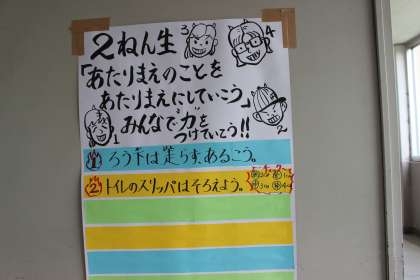 2ねん生
「あたりまえのことを
あたりまえにしていこう」
みんなで力を
つけていこう!!
3
4
1
2
1 ろう下は走らず、あるこう。
2 トイレのスリッパはそろえよう。